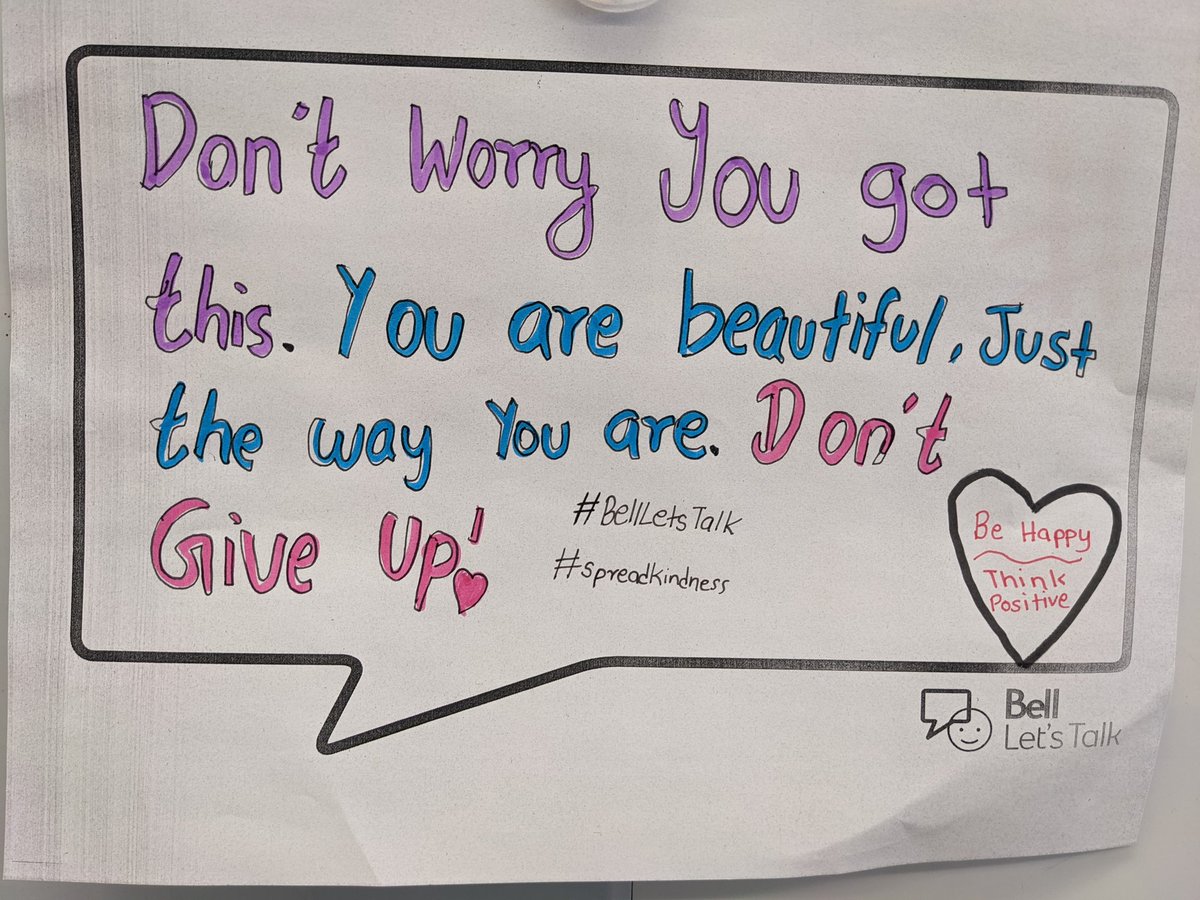 Don't Worry You got
this. You are beautiful, Just
the way You are. Don't
Give Up!
#BellLetsTalk
#spreadkindness
Be Happy
Think
Positive
Bell
Let's Talk